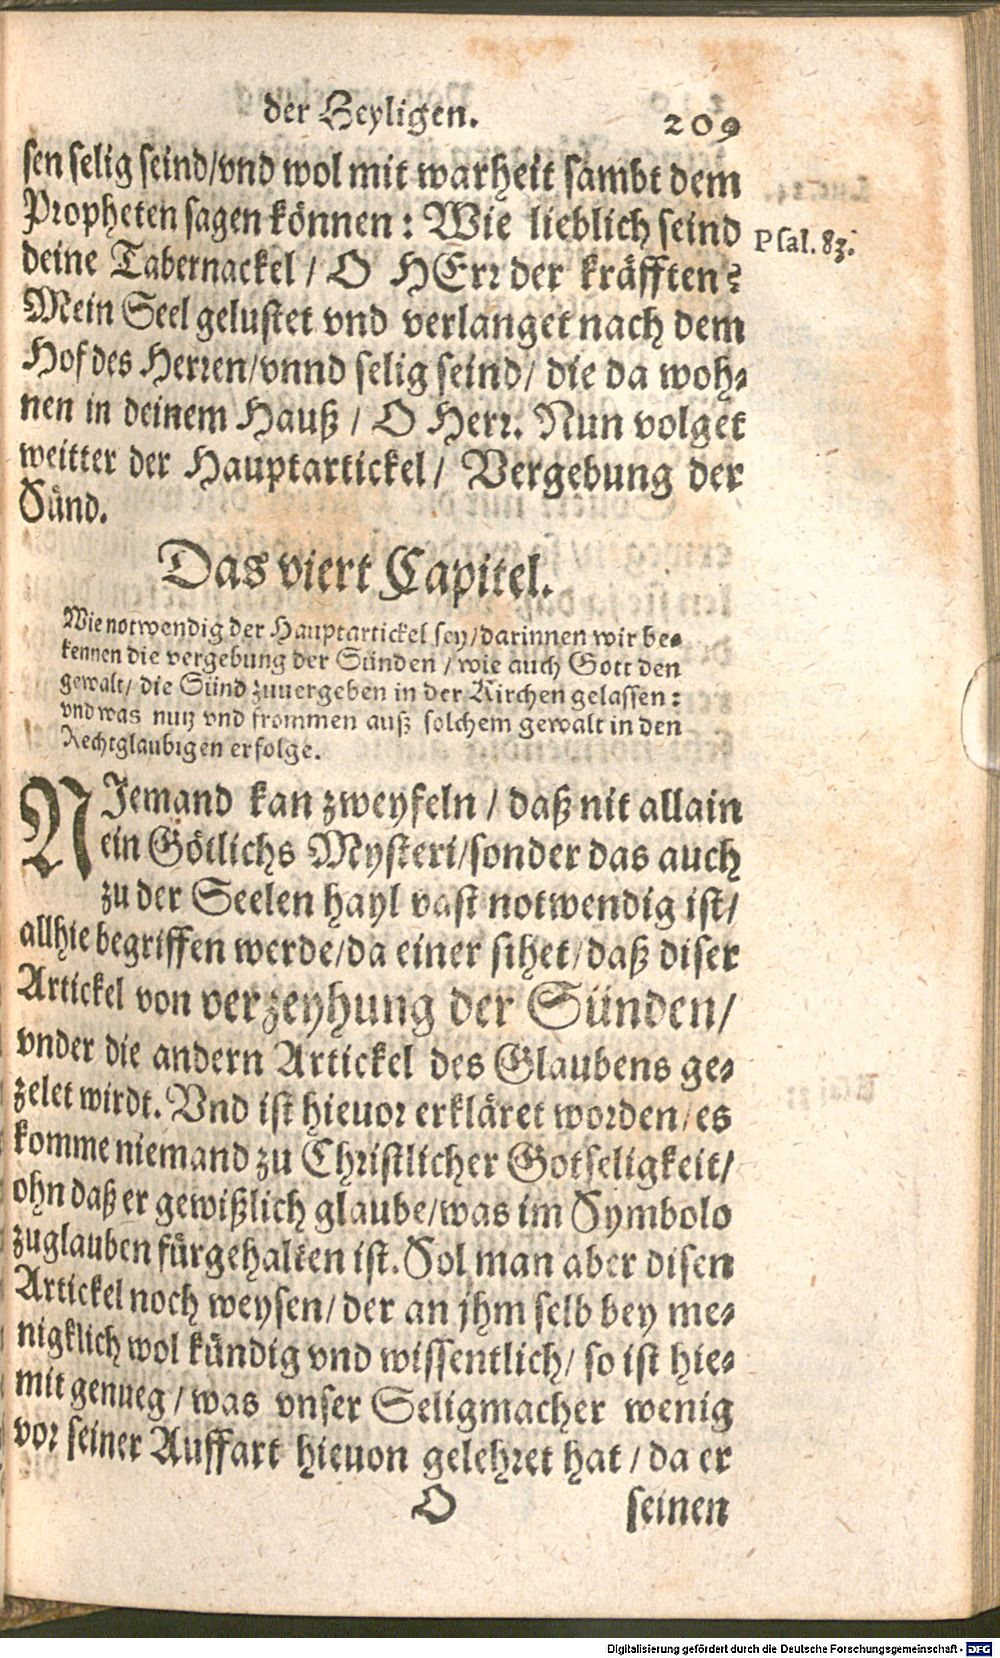 der Heyligen. 209
sen selig seind/vnd wol mit warheit sambt dem
Propheten sagen können: Wie lieblich seind
Psal. 83.
deine Tabernackel / O HErr der kräfften?
Mein Seel gelustet vnd verlanget nach dem
Hof des Herren/vnnd selig seind/ die da woh-
nen in deinem Hauß / O Herr. Nun volget
weitter der Hauptartickel/ Vergebung der
Sünd.
Das viert Capitel.
Wie notwendig der Hauptartickel sey/darinnen wir be-
kennen die vergebung der Sünden / wie auch Gott den
gewalt/ die Sünd zuuergeben in der Kirchen gelassen:
vnd was nutz vnd frommen auß solchem gewalt in den
Rechtglaubigen erfolge.
NJemand kan zweyfeln / daß nit allain
ein Götlichs Mysteri/sonder das auch
zu der Seelen hayl vast notwendig ist/
allhie begriffen werde/da einer sihet/daß diser
Artickel von verzeyhung der Sünden/
vnder die andern Artickel des Glaubens ge-
zelet wirdt. Vnd ist hieuor erkläret worden/es
komme niemand zu Christlicher Gotseligkeit/
ohn daß er gewißlich glaube/was im Symbolo
zuglauben fürgehalten ist. Sol man aber disen
Artickel noch weysen/der an jhm selb bey me-
nigklich wol kündig vnd wissentlich/ so ist hie-
mit genueg / was vnser Seligmacher wenig
vor seiner Auffart hieuon gelehret hat / da er
O seinen
Digitalisierung gefördert durch die Deutsche Forschungsgemeinschaft - DFG